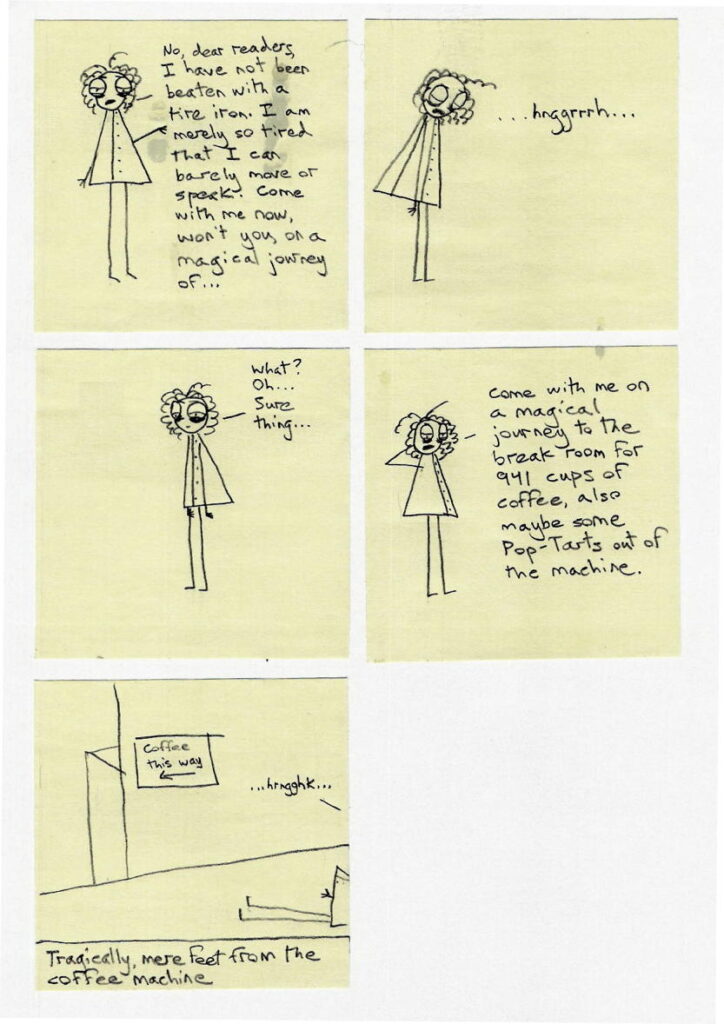 No, dear readers,
I have not been
beaten with a
tire iron. I am
merely so tired
that I can
barely move or
speak. Come
with me now,
won't you, on a
magical journey
of...
...hnggrrrh...
what?
Oh...
Sure
thing...
Come with me on
a magical
journey to the
break room for
941 cups of
coffee, also
maybe some
Pop-Tarts out of
the machine.
Coffee
this way
...hrngghk...
Tragically, mere feet from the
coffee machine